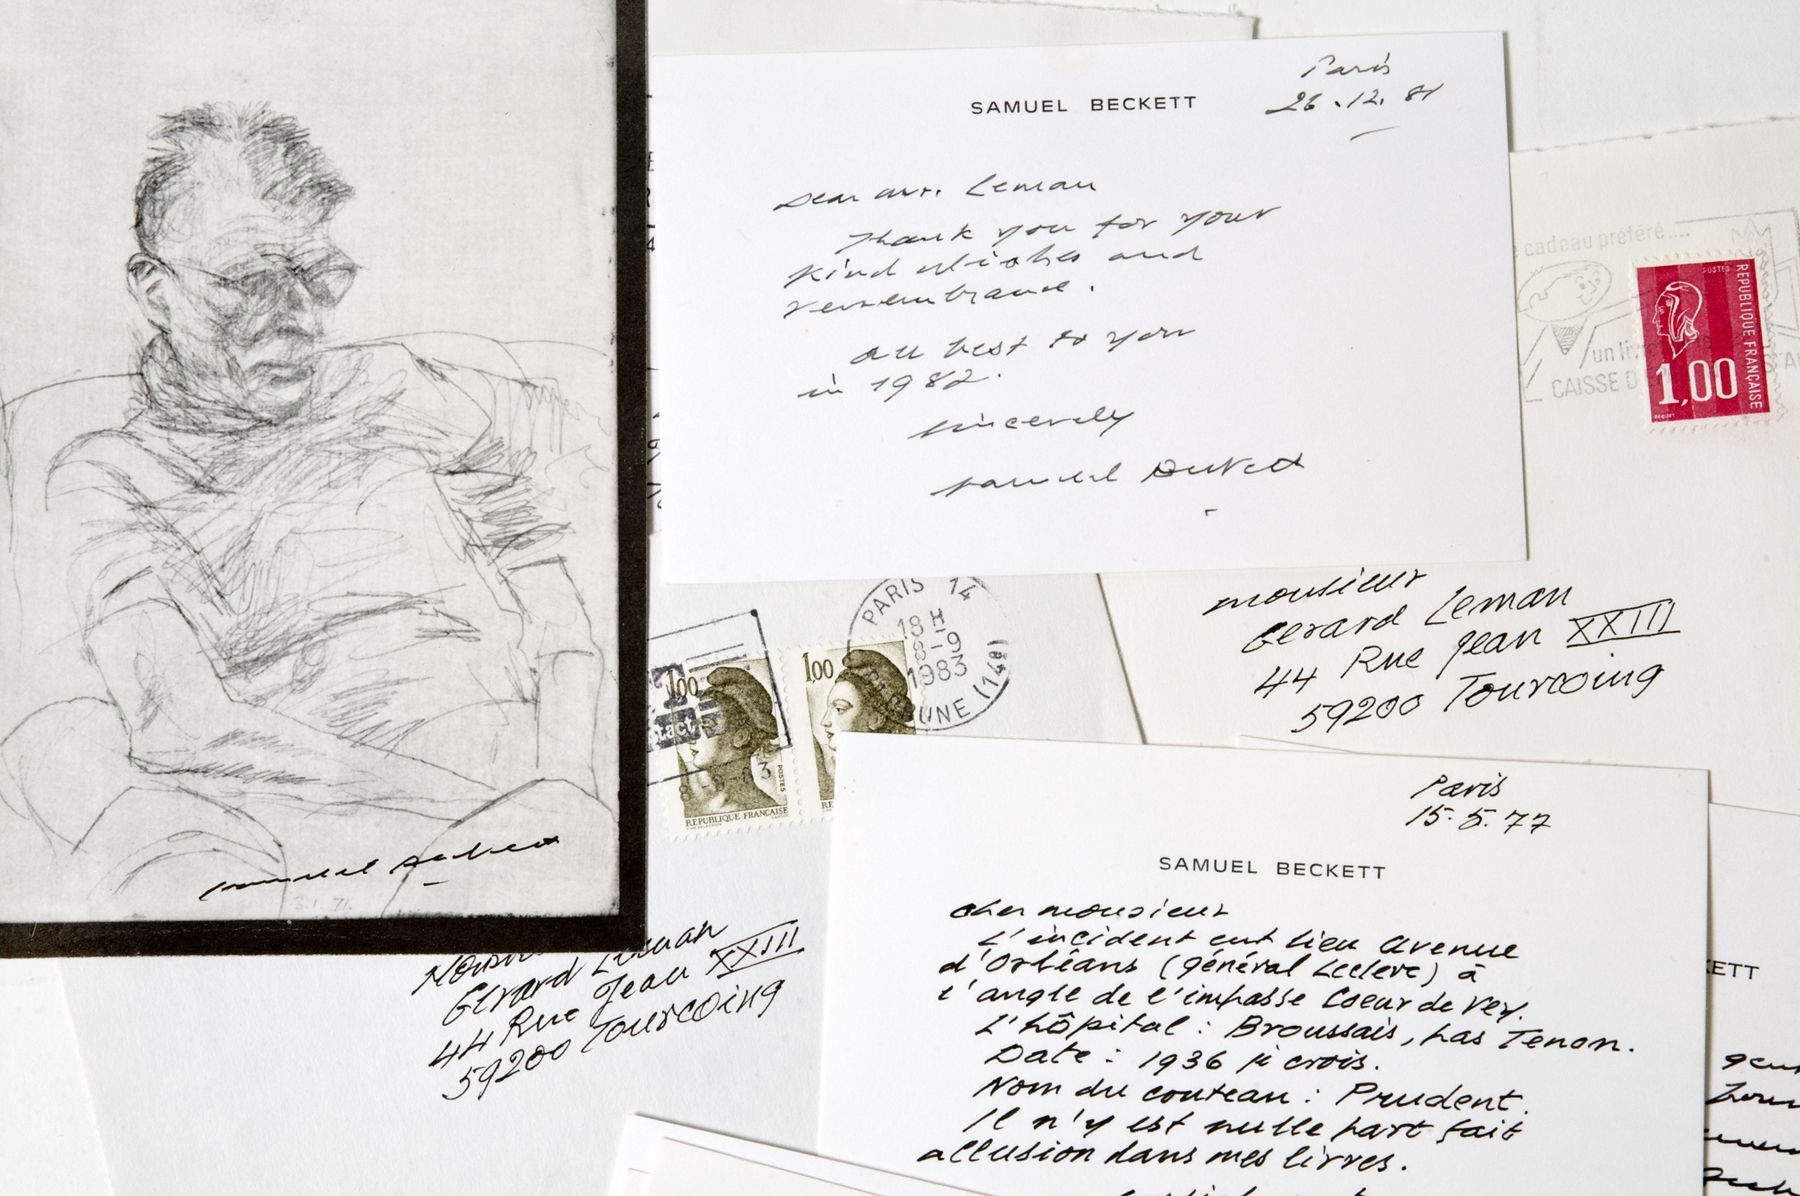 samuel Beckett
3.1.71.
SAMUEL BECKETT
Paris
26.12.81
Dear Mr. Leman
Thank you for your
kind wishes and
remembrance.
All best to you
in 1982.
Sincerely
Samuel Beckett
cadeau préféré....
un liv
CAISSE D
POSTES
REPUBLIQUE FRANÇAISE
1,00
monsieur
Gérard Leman
44 Rue Jean XXIII
59200 Tourcoing
PARIS 14
18 H
8-9
1983
UNE (14e)
1,00
1,00
POSTES
REPUBLIQUE FRANÇAISE
Gérard Leman
44 Rue Jean XXIII
59200 Tourcoing
Paris
15.5.77
SAMUEL BECKETT
Cher monsieur
L'incident eut lieu avenue
d'Orléans (général Leclerc) à
l'angle de l'impasse Coeur de Vey.
L'hôpital : Broussais, pas Tenon.
Date : 1936 je crois.
Nom du couteau : Prudent.
Il n'y est nulle part fait
allusion dans mes livres.
KETT